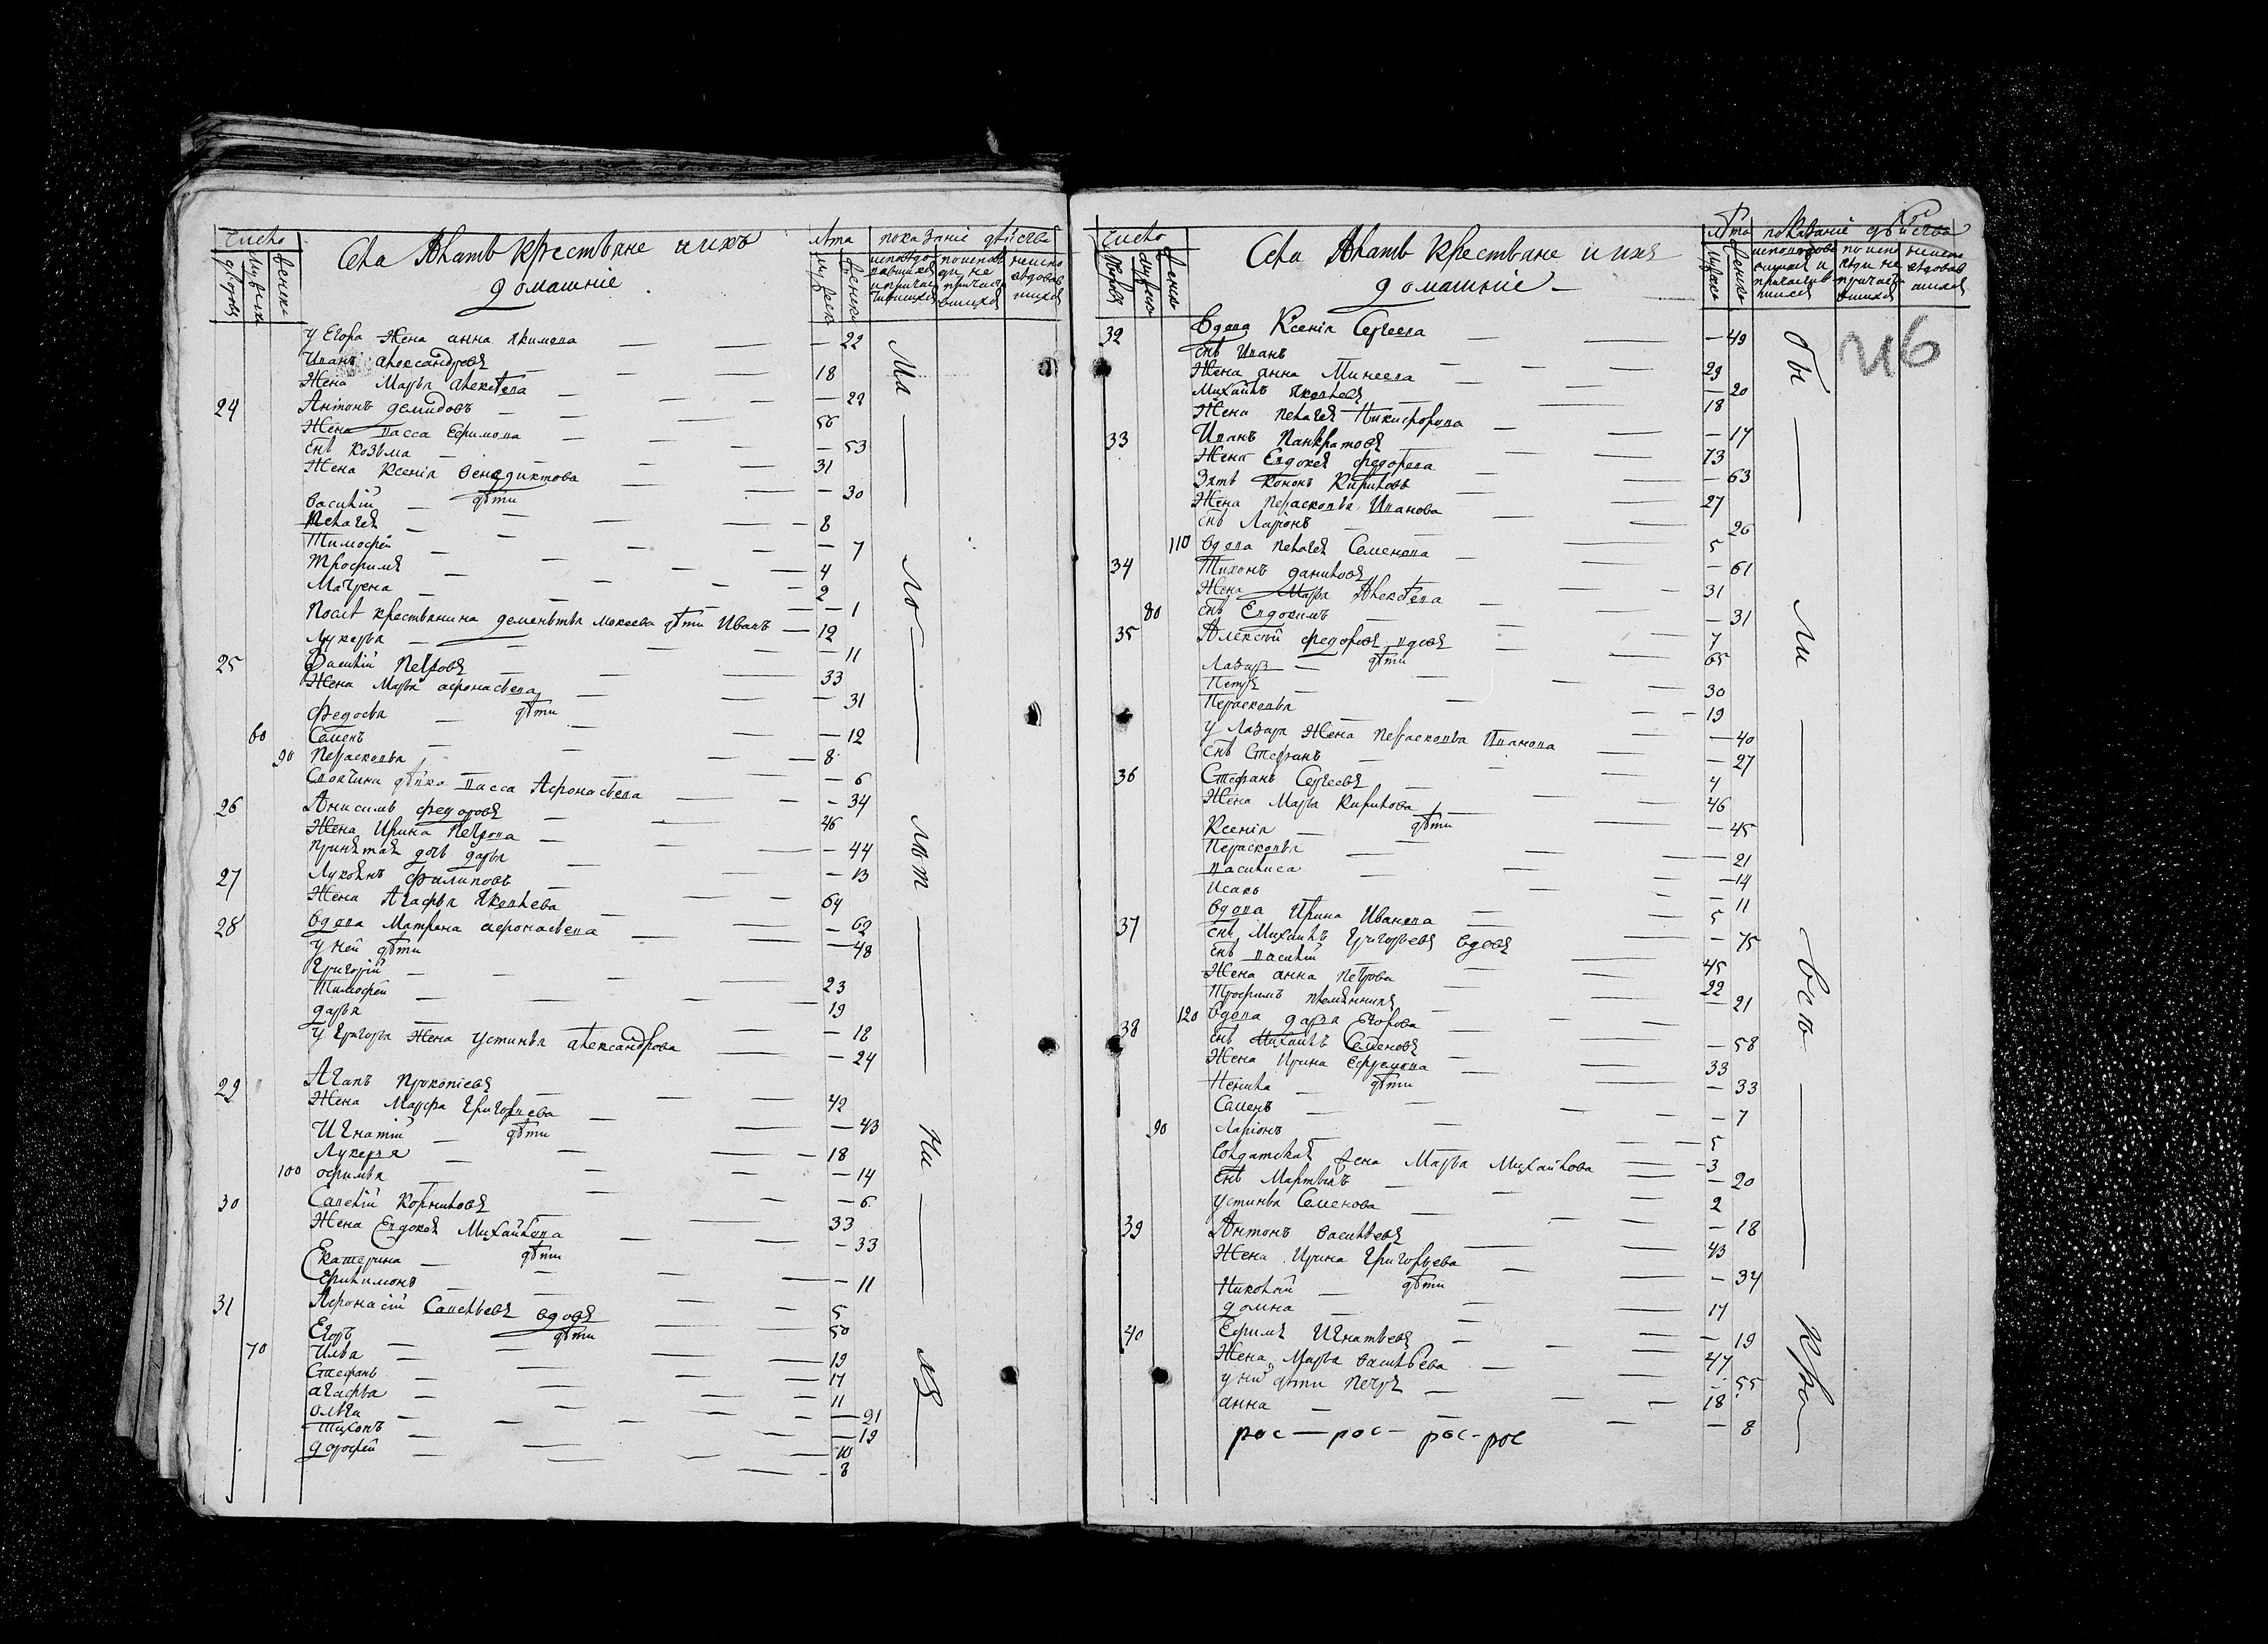 Число
дворовъ
мужеск
женск
Села Алать крестьяне и ихъ
домашніе
лѣта
мужеск
женски
показаніе дѣйства
исповѣдо
вавшихся
и причас
тившихся
по исповѣ
ди не
причаст
вшихся
неиспо
вѣдовав
шихся
у Егора жена анна Якимова — 22
Иванъ александровъ — 18
Жена Марья алексѣева — 22
24 Антонъ демидовъ — 56
Жена васса Ефимова — 53
снъ козьма — 31
Жена Ксенія венедиктова — 30
дѣти
василій — 8
Пелагея — 7
Тимофей — 4
Трофимъ — 2
Матрена — 1
После крестьянина деменьтья мокеева дѣти Иванъ — 12
Лукерья — 11
25 Василій Петровъ — 33
Жена Марья афонасьева — 31
дѣти
Федосья — 12
60 Семенъ — 8
90 Перасковья — 6
Своячина дѣвка васса Афонасьева — 34
26 Анисимъ федоровъ — 46
Жена Ирина Петрова — 44
принятая дочь дарья — 13
27 Лукоянъ филиповъ — 64
Жена Агафья Яковлева — 62
28 вдова Матрена афонасьева — 48
у ней дѣти
Григорій — 23
Тимофей — 19
дарья — 12
у Григорья жена устинья александрова — 24
29 Агапъ Прокопіевъ — 42
Жена Марфа Григорьева — 43
дѣти
Игнатій — 18
Лукерья — 14
100 офимья — 6
30 Савелій Корниловъ — 33
Жена Евдокея Михайлова — 33
дѣти
Екатерина — 11
Филимонъ — 5
31 Афонасій Савельевъ вдовъ — 50
дѣти
Егоръ — 19
70 Илья — 17
Стефанъ — 11
агафья — 21
ольга — 19
Тихонъ — 10
дорофей — 8
Ма — ло — лѣт — ни — мъ
Число
дворовъ
мужеск
женск
Села Алать крестьяне и ихъ
домашніе
лѣта
мужеск
женски
показаніе дѣйства
исповѣдова
вшихся и
причастив
шихся
по испо
вѣди не
причаст
вшихся
неиспо
вѣдовав
шихся
32 вдова Ксенія Сергеева — 49
снъ Иванъ — 29
Жена анна Минеева — 20
Михайлъ Яковлевъ — 18
Жена пелагея Никифорова — 17
33 Иванъ Панкратовъ — 73
Жена Евдокея федорова — 63
Зять Кононъ Кириловъ — 27
Жена Пераскопья Иванова — 26
снъ Ларіонъ — 5
110 вдова пелагея Семенова — 61
34 Тихонъ даниловъ — 31
Жена Марья Алексѣева — 31
80 снъ Евдокимъ — 7
35 Алексѣй федоровъ вдовъ — 65
дѣти
Лазарь — 30
Петръ — 19
Пераскопья — 40
у Лазаря Жена Пераскопья Иванова — 27
снъ Стефанъ — 4
36 Стефанъ Сергеевъ — 46
Жена Марья Кирилова — 45
дѣти
Ксенія — 21
Пераскопья — 14
василиса — 11
Исакъ — 5
37 вдова Ирина Иванова — 75
снъ Михайлъ Григорьевъ вдовъ — 45
снъ василій — 22
Жена анна Петрова — 21
Трофимъ племянникъ
120 38 вдова дарья Егорова — 58
снъ Михайлъ Семеновъ — 33
Жена Ирина Ефремова — 33
дѣти
Ненила — 7
Семенъ — 5
90 Ларіонъ — 3
Солдатская жена Марья Михайлова — 20
снъ Мартынъ — 2
устинья Семенова — 18
39 Антонъ васильевъ — 43
Жена Ирина Григорьева — 34
дѣти
Николай — 17
домна — 19
40 Ефимъ Игнатьевъ — 47
Жена Марья васильева — 55
у них дѣти Петръ — 18
анна — 8
рос — рос — рос - рос
бы — ли — Вси — при —